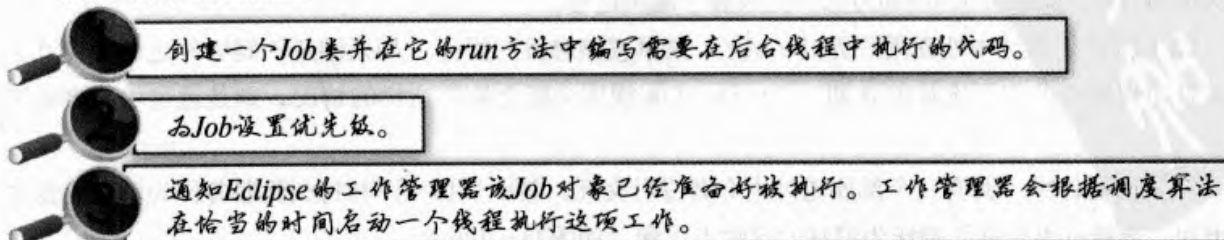 1 创建一个Job类并在它的run方法中编写需要在后台线程中执行的代码。
2 为Job设置优先级。
3 通知Eclipse的工作管理器该Job对象已经准备好被执行。工作管理器会根据调度算法
在恰当的时间启动一个线程执行这项工作。